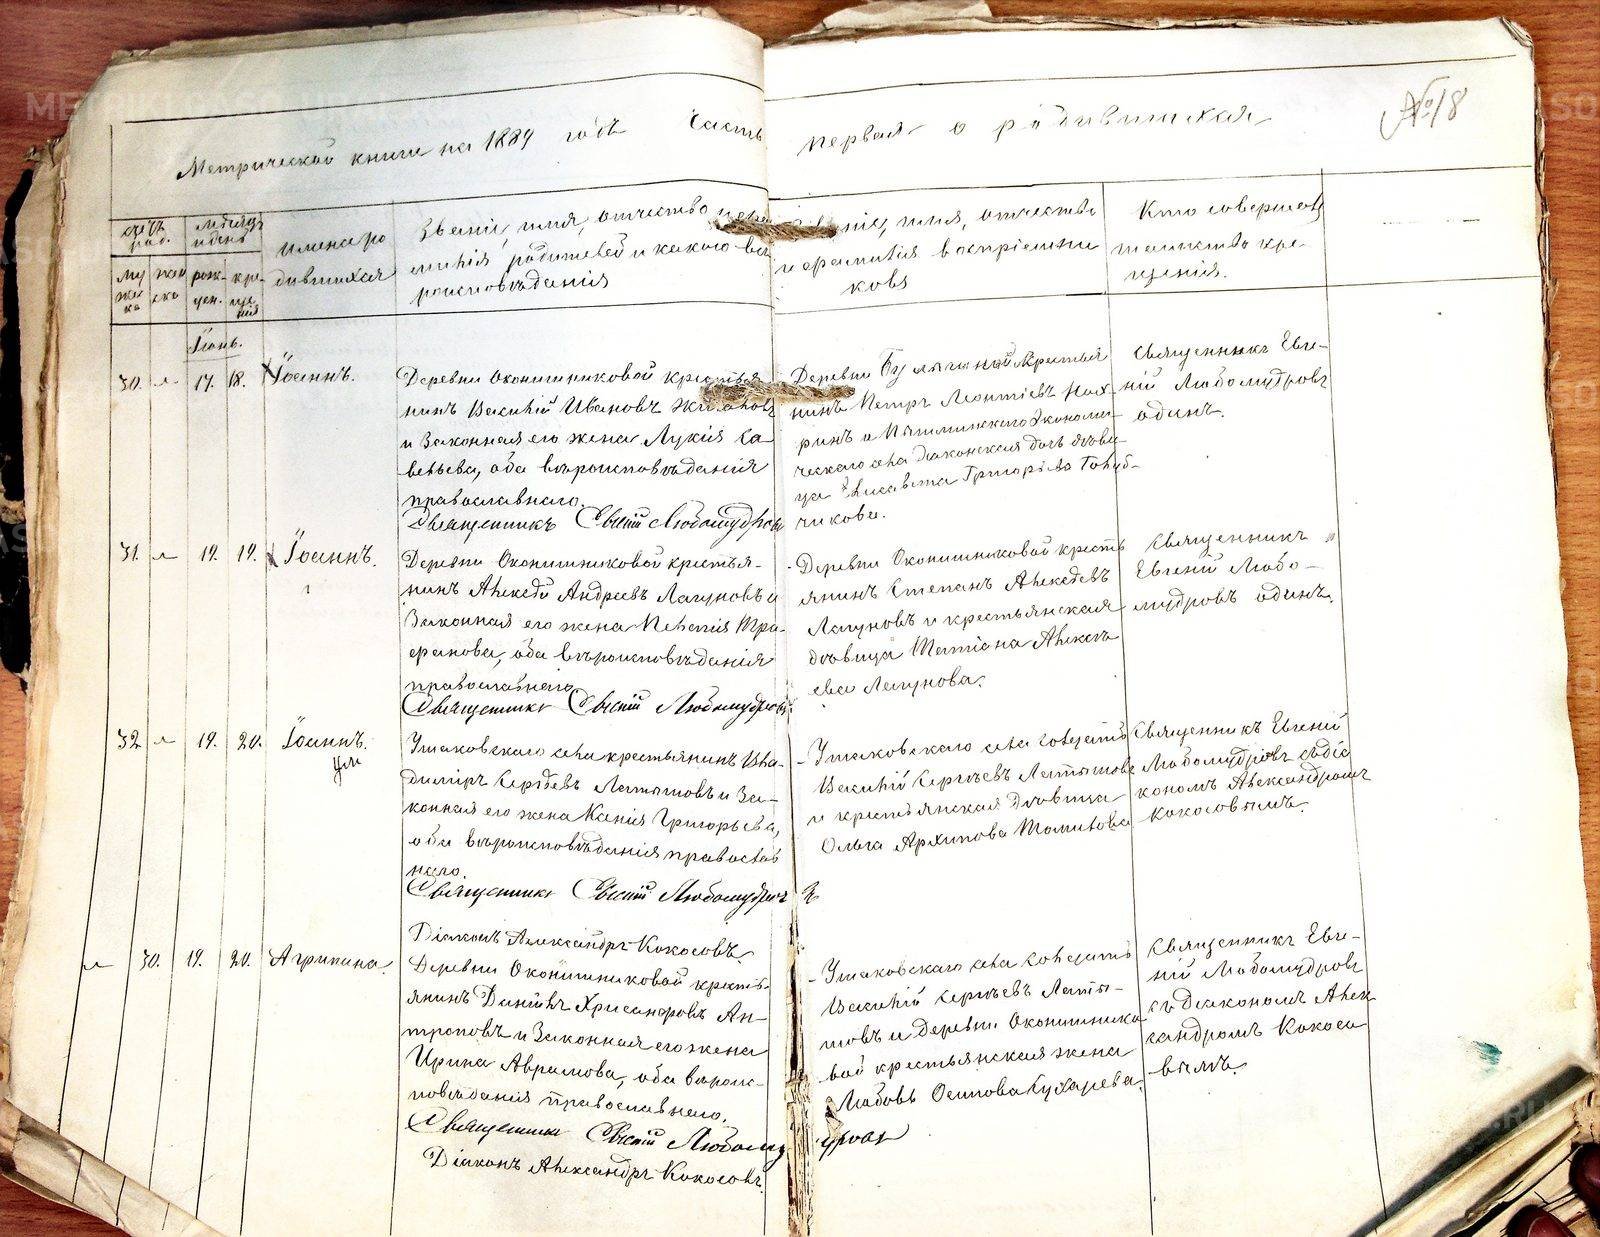 Метрической книги на 1889 годъ Часть
первая о родившихся
№18
Имена ро
дившихся
Званіе, имя, отчество
родителей и какого вѣ
роисповѣданія
имя, отчество
и фамилія воспріемни
ковъ
Кто совершалъ
таинство кре
щенія.
Іюнь.
30. 17. 18. Іоаннъ.
Деревни Оконишниковой
нинъ Василій Ивановъ
и законная его жена Лукія Са
вельева, оба вѣроисповѣданія
православнаго.
Священникъ Евгеній Любомудровъ
Деревни крестья
нинъ Петръ Леонтіевъ
ринъ и
ческаго села Діаконская дочь дѣви
ца Елисавета Григорьева Голуб-
чикова.
Священникъ Евге-
ній Любомудровъ
одинъ.
31. 19. 19. Іоаннъ.
Деревни Оконишниковой крестья-
нинъ Алексѣй Андреевъ Лагуновъ и
Законная его жена Пелагія Тро-
фимова, оба вѣроисповѣданія
православнаго
Священникъ Евгеній Любомудровъ
Деревни Оконишниковой кресть
янинъ Степанъ Алексѣевъ
Лагуновъ и крестьянская
дѣвица Татіана Алексѣ
ева Лагунова.
Священникъ
Евгеній Любо-
мудровъ одинъ.
32 19. 20. Іоаннъ.
Ушаковскаго села крестьянинъ Вла-
диміръ Сергѣевъ Латышовъ и За-
конная его жена Ксенія Григорьева,
оба вѣроисповѣданія православ
наго.
Священникъ Евгеній Любомудров
ъ
Діаконъ Александръ Кокосовъ.
Ушаковскаго села солдатъ
Василій Сергѣевъ Латышовъ
и крестьянская дѣвица
Ольга Архипова
Священникъ Евгеній
Любомудровъ съ діа
кономъ Александромъ
Кокосовымъ.
30. 19. 20. Агрипина.
Деревни Оконишниковой кресть-
янинъ Даніилъ Хрисанфовъ Ан-
троповъ и Законная его жена
Ирина Аврамова, оба вѣроис-
повѣданія православнаго.
Священникъ Евгеній Любому
дровъ
Діаконъ Александръ Кокосовъ.
Ушаковскаго села солдатъ
Василій Сергѣевъ Латы-
шовъ и Деревни Оконишнико
вой крестьянская жена
Любовь Осипова Кухарева.
Священникъ Евге-
ній Любомудровъ
съ Діакономъ Алек
сандромъ Кокосо
вымъ.